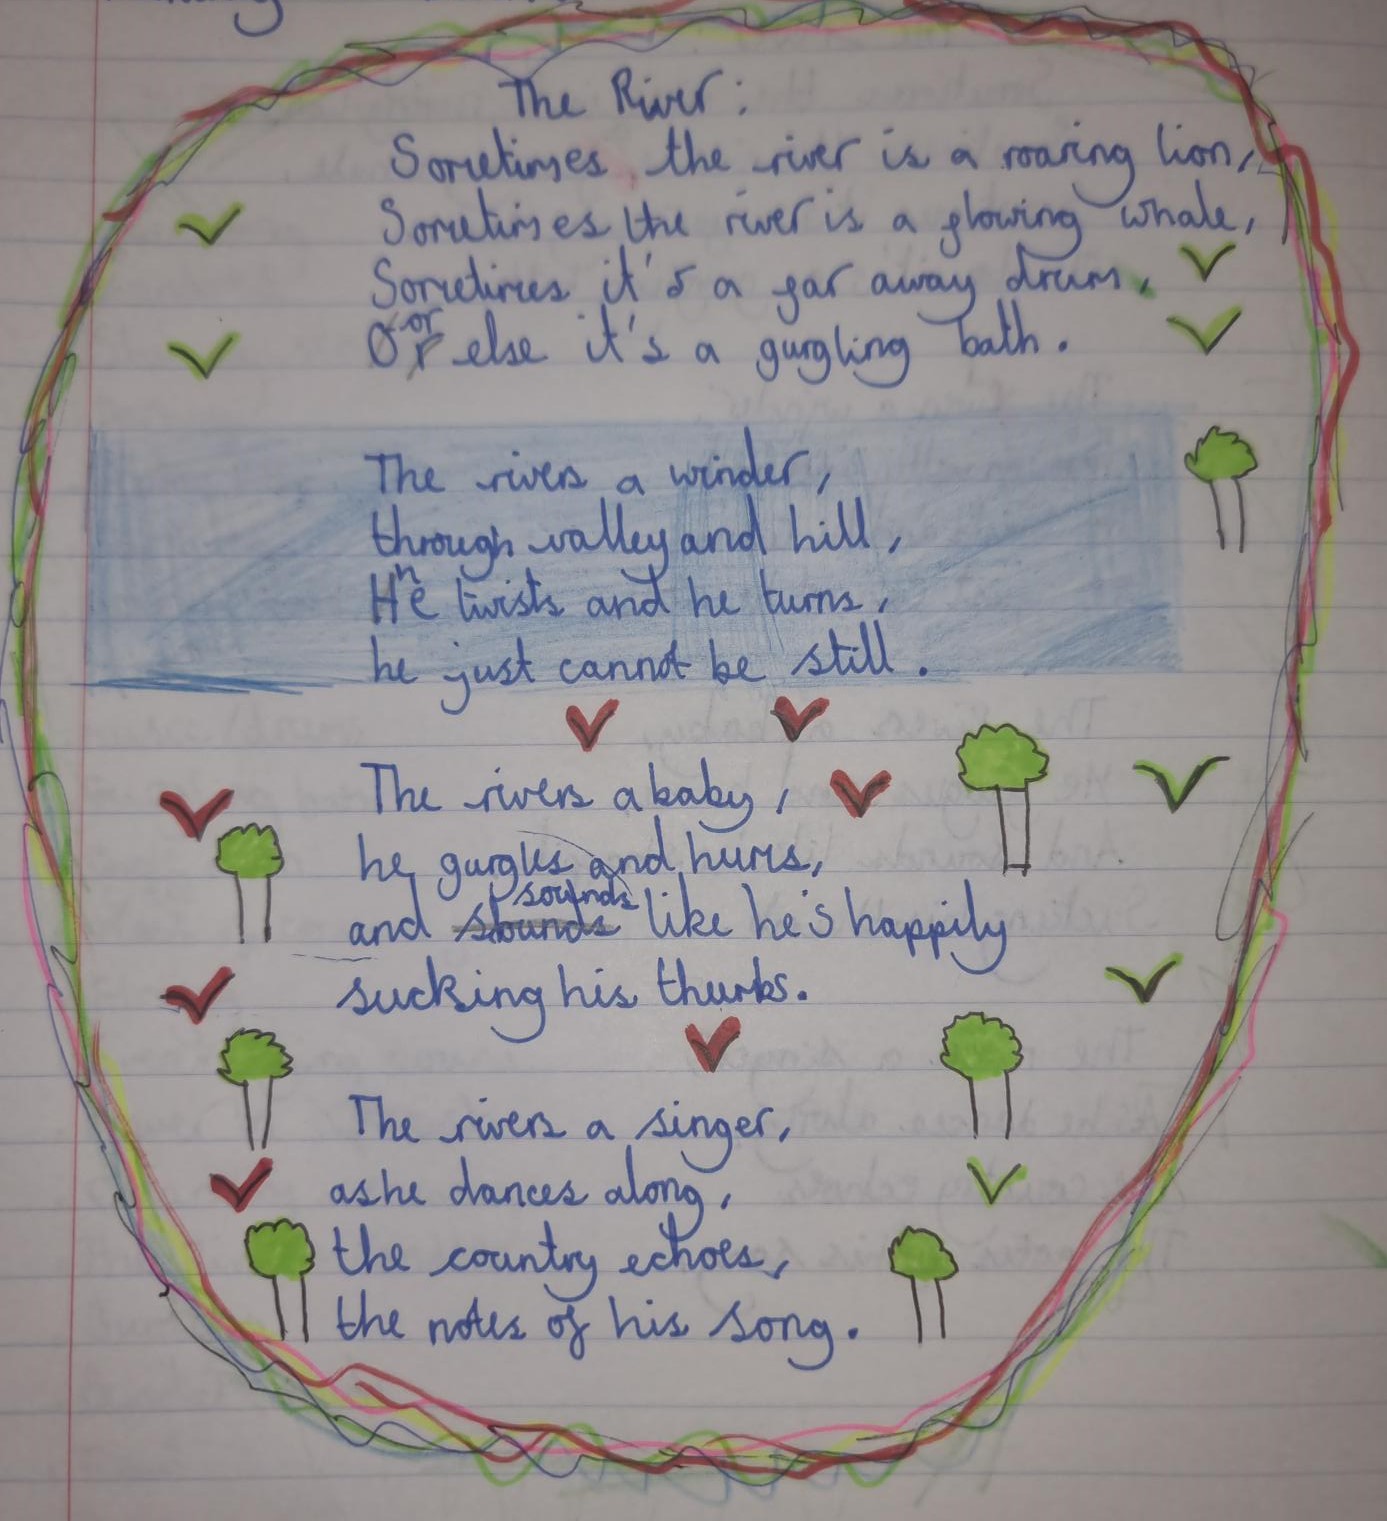 The River:
Sometimes the river is a roaring lion,
Sometimes the river is a glowing whale,
Sometimes it's a far away drum,
Or else it's a gurgling bath.
The rivers a winder,
through valley and hill,
He twists and he turns,
he just cannot be still.
The rivers a baby,
he gurgles and hums,
and sounds like he's happily
sucking his thumbs.
The rivers a singer,
as he dances along,
the country echoes,
the notes of his song.